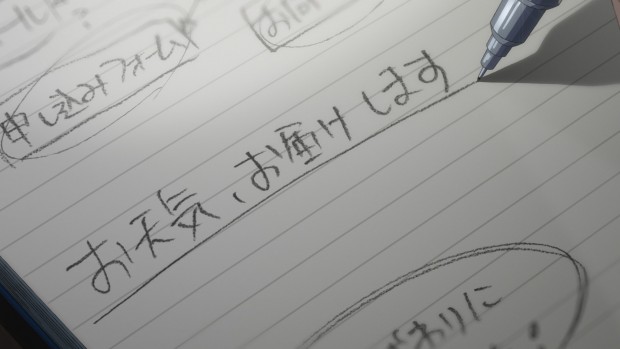 申し込みフォーム
お天気、お届けします
がわりに